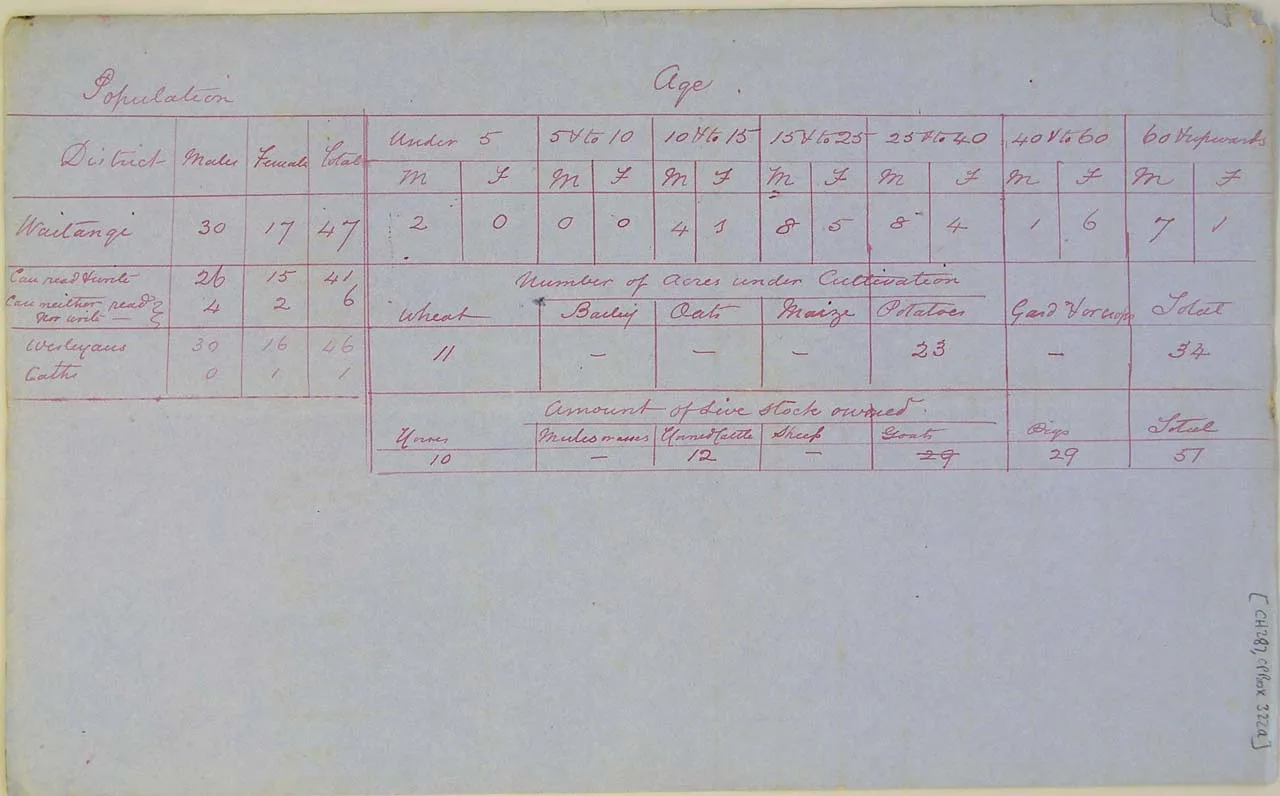 Population
Age.
District Males Females Total
Under 5 5 & to 10 10 & to 15 15 & to 25 25 & to 40 40 & to 60 60 & upwards
M F M F M F M F M F M F M F
Waitangi 30 17 47 2 0 0 0 4 1 8 5 8 4 1 6 7 1
Can read & write 26 15 41
Can neither read
nor write — 4 2 6
Wesleyans 30 16 46
Caths 0 1 1
Number of Acres under Cultivation
Wheat Barley Oats Maize Potatoes Gard & or crops Total
11 – – – 23 – 34
Amount of Live Stock owned.
Horses Mules or asses Horned Cattle Sheep Goats Pigs Total
10 – 12 – 29 29 51
[CH287, CPBox 322a]